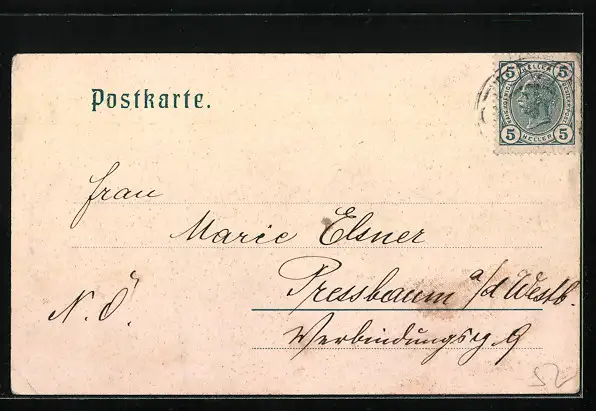 Postkarte.
5 HELLER 5
5 HELLER 5
Frau
Marie Elsner
Pressbaum a/d Westb.
N. Ö.
Verbindungsg. 9
52